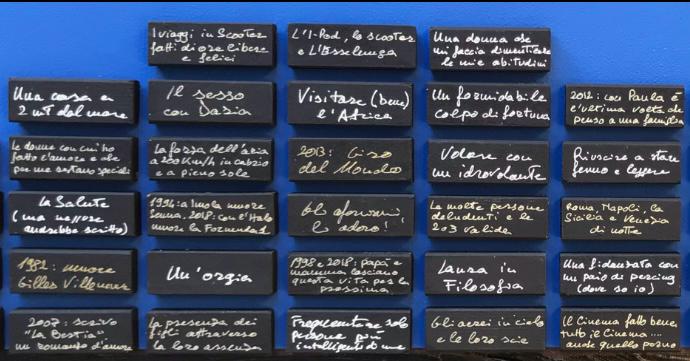 I viaggi in Scooter
fatti di ore libere
e felici
L'I-Pod, lo scooter
e l'Esselunga
Una donna che
mi faccia dimenticare
le mie abitudini
Una casa a
2 mT dal mare
Il sesso
con Dazia
Visitare (bene)
l'Africa
Un formidabile
colpo di fortuna
2012: con Paula è
l'ultima volta che
penso a una famiglia
le donne con cui ho
fatto l'amore e che
per me restano speciali
La forza dell'aria
a 200 Km/h in cabrio
e a pieno sole
2013: Giro
del Mondo
Volare con
un idrovolante
Riuscire a stare
fermo e leggere
la Salute
(ma neppure
andrebbe scritto)
1994: a Imola muore
Senna. 2018: con l'Halo
muore la Formula 1
Gli aforismi,
li adoro!
Le molte persone
deludenti e le
203 valide
Roma, Napoli, la
Sicilia e Venezia
di notte
1982: muore
Gilles Villeneuve
Un'orgia
1998 e 2018: papà e
mamma lasciano
questa vita per la
prossima
Laurea in
Filosofia
Una fidanzata con
un paio di piercing
(dove so io)
2007: scrivo
"La Bestia"
un romanzo d'amore
La presenza dei
figli attraverso
la loro assenza
Frequentare solo
persone più
intelligenti di me
Gli aerei in cielo
e le loro scie
Il Cinema fatto bene
tutto il Cinema...
anche quello porno